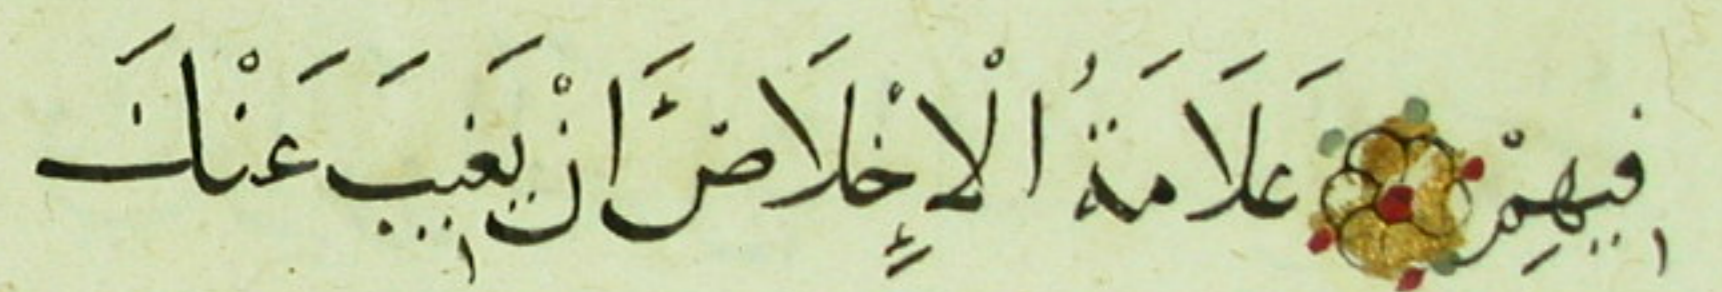 فِيهِمْ عَلَامَةُ الْإِخْلَاصِ اَنْ يَغِيبَ عَنْكَ